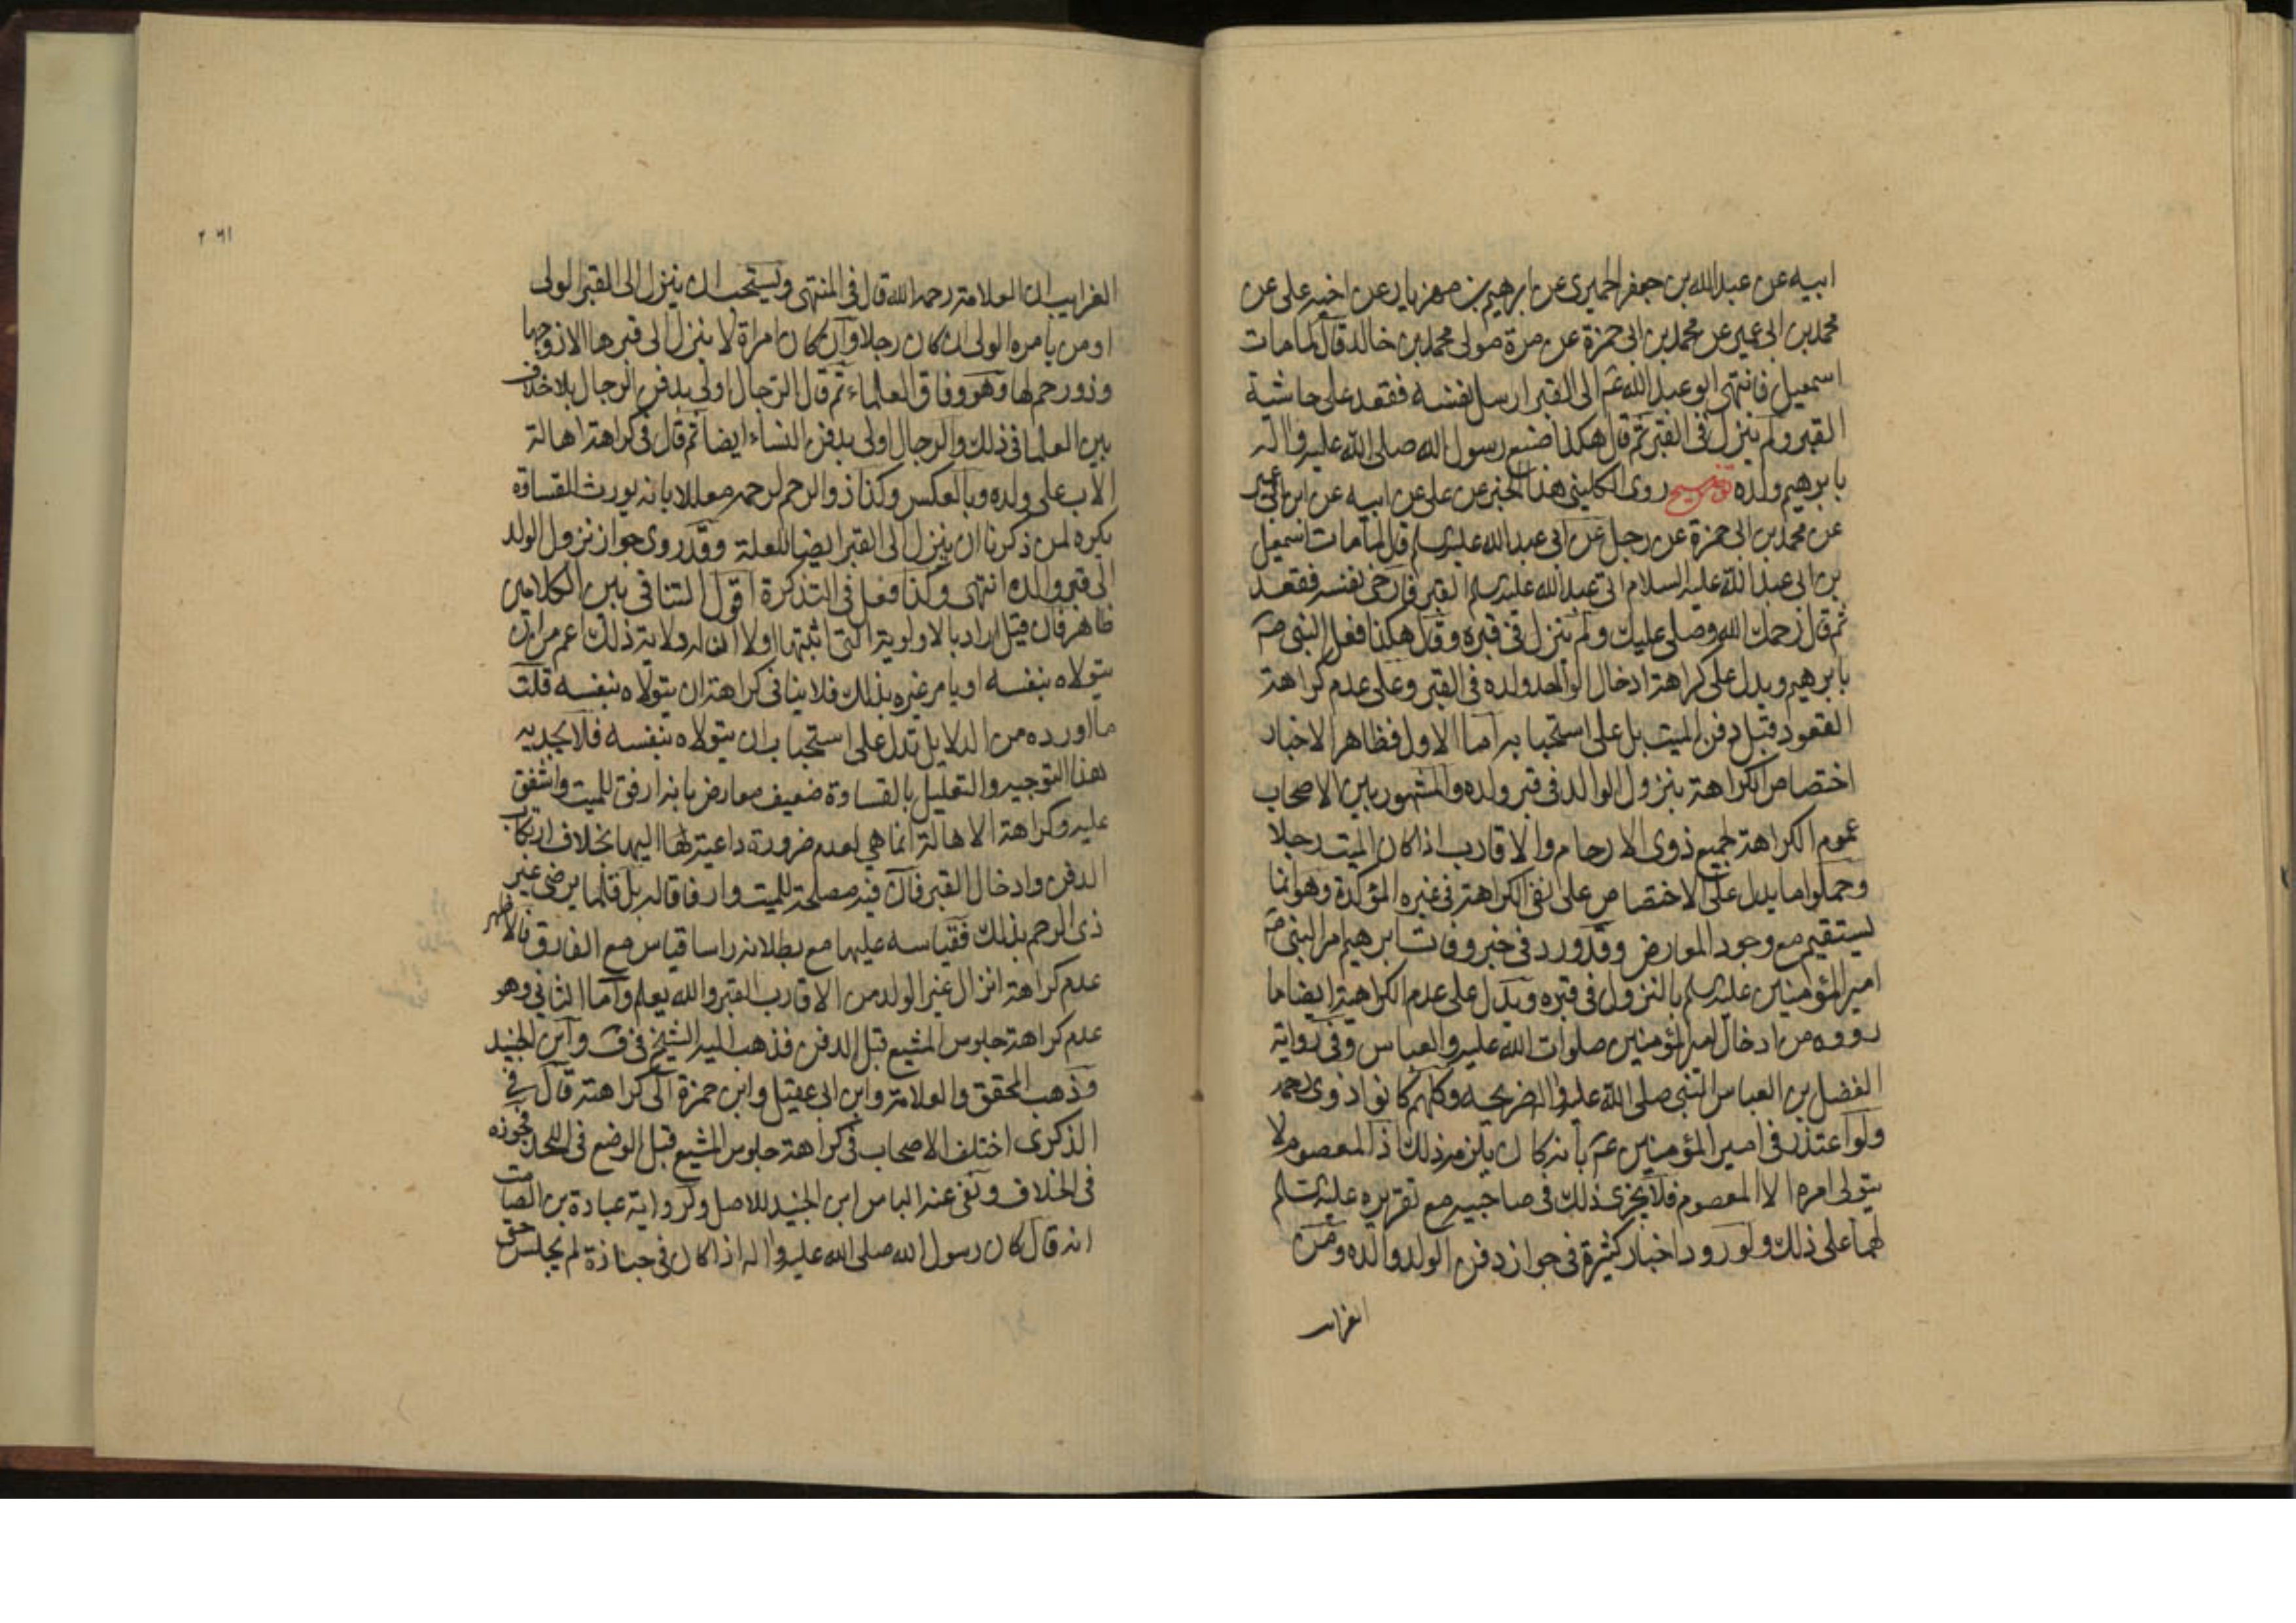 ابيه عن عبد الله بن جعفر الحميرى عن ابرهيم بن مهزيار عن اخيه على عن
محمد بن ابى عمير عن محمد بن ابى حمزة عن مرة مولى محمد بن خالد قال لما مات
اسمعيل فانتهى ابو عبد الله عم الى القبر ارسل نفسه فقعد على حاشية
القبر ولم ينزل فى القبر ثم قال هكذا صنع رسول الله صلى الله عليه واله
بابرهيم ولده توضيح روى الكلينى هذا الخبر عن على عن ابيه عن ابن ابى عمير
عن محمد بن ابى حمزة عن رجل عن ابى عبد الله عليه السلم قال لما مات اسمعيل
بن ابى عبد الله عليه السلام اتى عبد الله عليه السلم القبر فارخى نفسه فقعد
ثم قال رحمك الله وصلى عليك ولم ينزل فى قبره وقال هكذا فعل النبى ص
بابرهيم ويدل على كراهة ادخال الوالد ولده فى القبر وعلى عدم كراهة
القعود قبل دفن الميت بل على استحبابه اما الاول فظاهر الاخبار
اختصاص الكراهة بنزول الوالد فى قبر ولده والمشهور بين الاصحاب
عموم الكراهة لجميع ذوى الارحام والاقارب اذا كان الميت رجلا
وحملوا ما يدل على الاختصاص على نفى الكراهة فى غيره المؤكدة وهو انما
يستقيم مع وجود المعارض وقد ورد فى خبر وفات ابرهيم امر النبى ص
امير المؤمنين عليه السلم بالنزول فى قبره ويدل على عدم الكراهية ايضا ما
رووه من ادخال امير المؤمنين صلوات الله عليه والعباس وفى رواية
الفضل بن العباس النبى صلى الله عليه واله ضريحه وكلهم كانوا ذوى رحمه
ولو اعتذر فى امير المؤمنين عم بانه كان يلزمه ذلك اذ المعصوم لا
يتولى امره الا المعصوم فلا يجزى ذلك فى صاحبيه مع تقريره عليه السلم
لهما على ذلك ولورود اخبار كثيرة فى جواز دفن الولد والده ومن
الغرايب
٢٠٦١
الغرايب ان العلامة رحمه الله قال فى المنتهى ويستحب ان ينزل الى القبر الولى
او من يامره الولى ان كان رجلا وان كان امراة لا ينزل الى قبرها الا زوجها
وذو رحم لها وهو وفاق العلماء ثم قال الرجال اولى بدفن الرجال بلا خلاف
بين العلما فى ذلك والرجال اولى بدفن النساء ايضا ثم قال فى كراهة اهالة
الاب على ولده وبالعكس وكذا ذو الرحم لرحمه معللا بانه يورث القساوة
يكره لمن ذكرنا ان ينزل الى القبر ايضا للعلة وقد روى جواز نزول الولد
الى قبر والده انتهى وكذا فعل فى التذكرة اقول التنافى بين الكلامين
ظاهر فان قيل اراد بالاولوية التى اثبتها اولا ان له ولاية ذلك اعم من ان
يتولاه بنفسه او يامر غيره بذلك فلا ينافى كراهة ان يتولاه بنفسه قلت
ما اورده من الدلايل تدل على استحباب ان يتولاه بنفسه فلا يجديه
هذا التوجيه والتعليل بالقساوة ضعيف معارض بانه ارفق للميت واشفق
عليه وكراهة الاهالة انما هى لعدم ضرورة داعية لها اليها بخلاف ارتكاب
الدفن وادخال القبر فان فيه مصلحة للميت وارفاقا له بل قلما يرضى غير
ذى الرحم بذلك فقياسه عليها مع بطلانه راسا قياس مع الفارق فالاظهر
عدم كراهة انزال غير الولد من الاقارب القبر والله يعلم واما الثانى وهو
عدم كراهة جلوس المشيع قبل الدفن فذهب اليه الشيخ فى ف وابن الجنيد
وذهب المحقق والعلامة وابن ابى عقيل وابن حمزة الى كراهته قال فى
الذكرى اختلف الاصحاب فى كراهة جلوس المشيع قبل الوضع فى اللحد فجوزه
فى الخلاف ونفى عنه الباس ابن الجنيد للاصل ولرواية عبادة بن الصامت
انه قال كان رسول الله صلى الله عليه واله اذا كان فى جنازة لم يجلس حتى